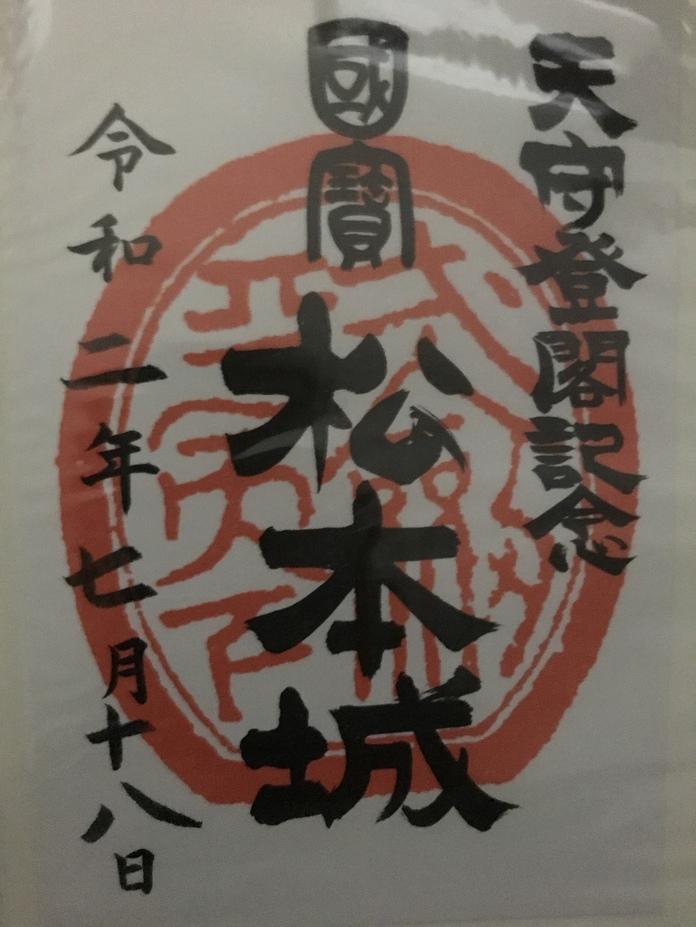 天守登閣記念
國寶
松本城
令和二年七月十八日